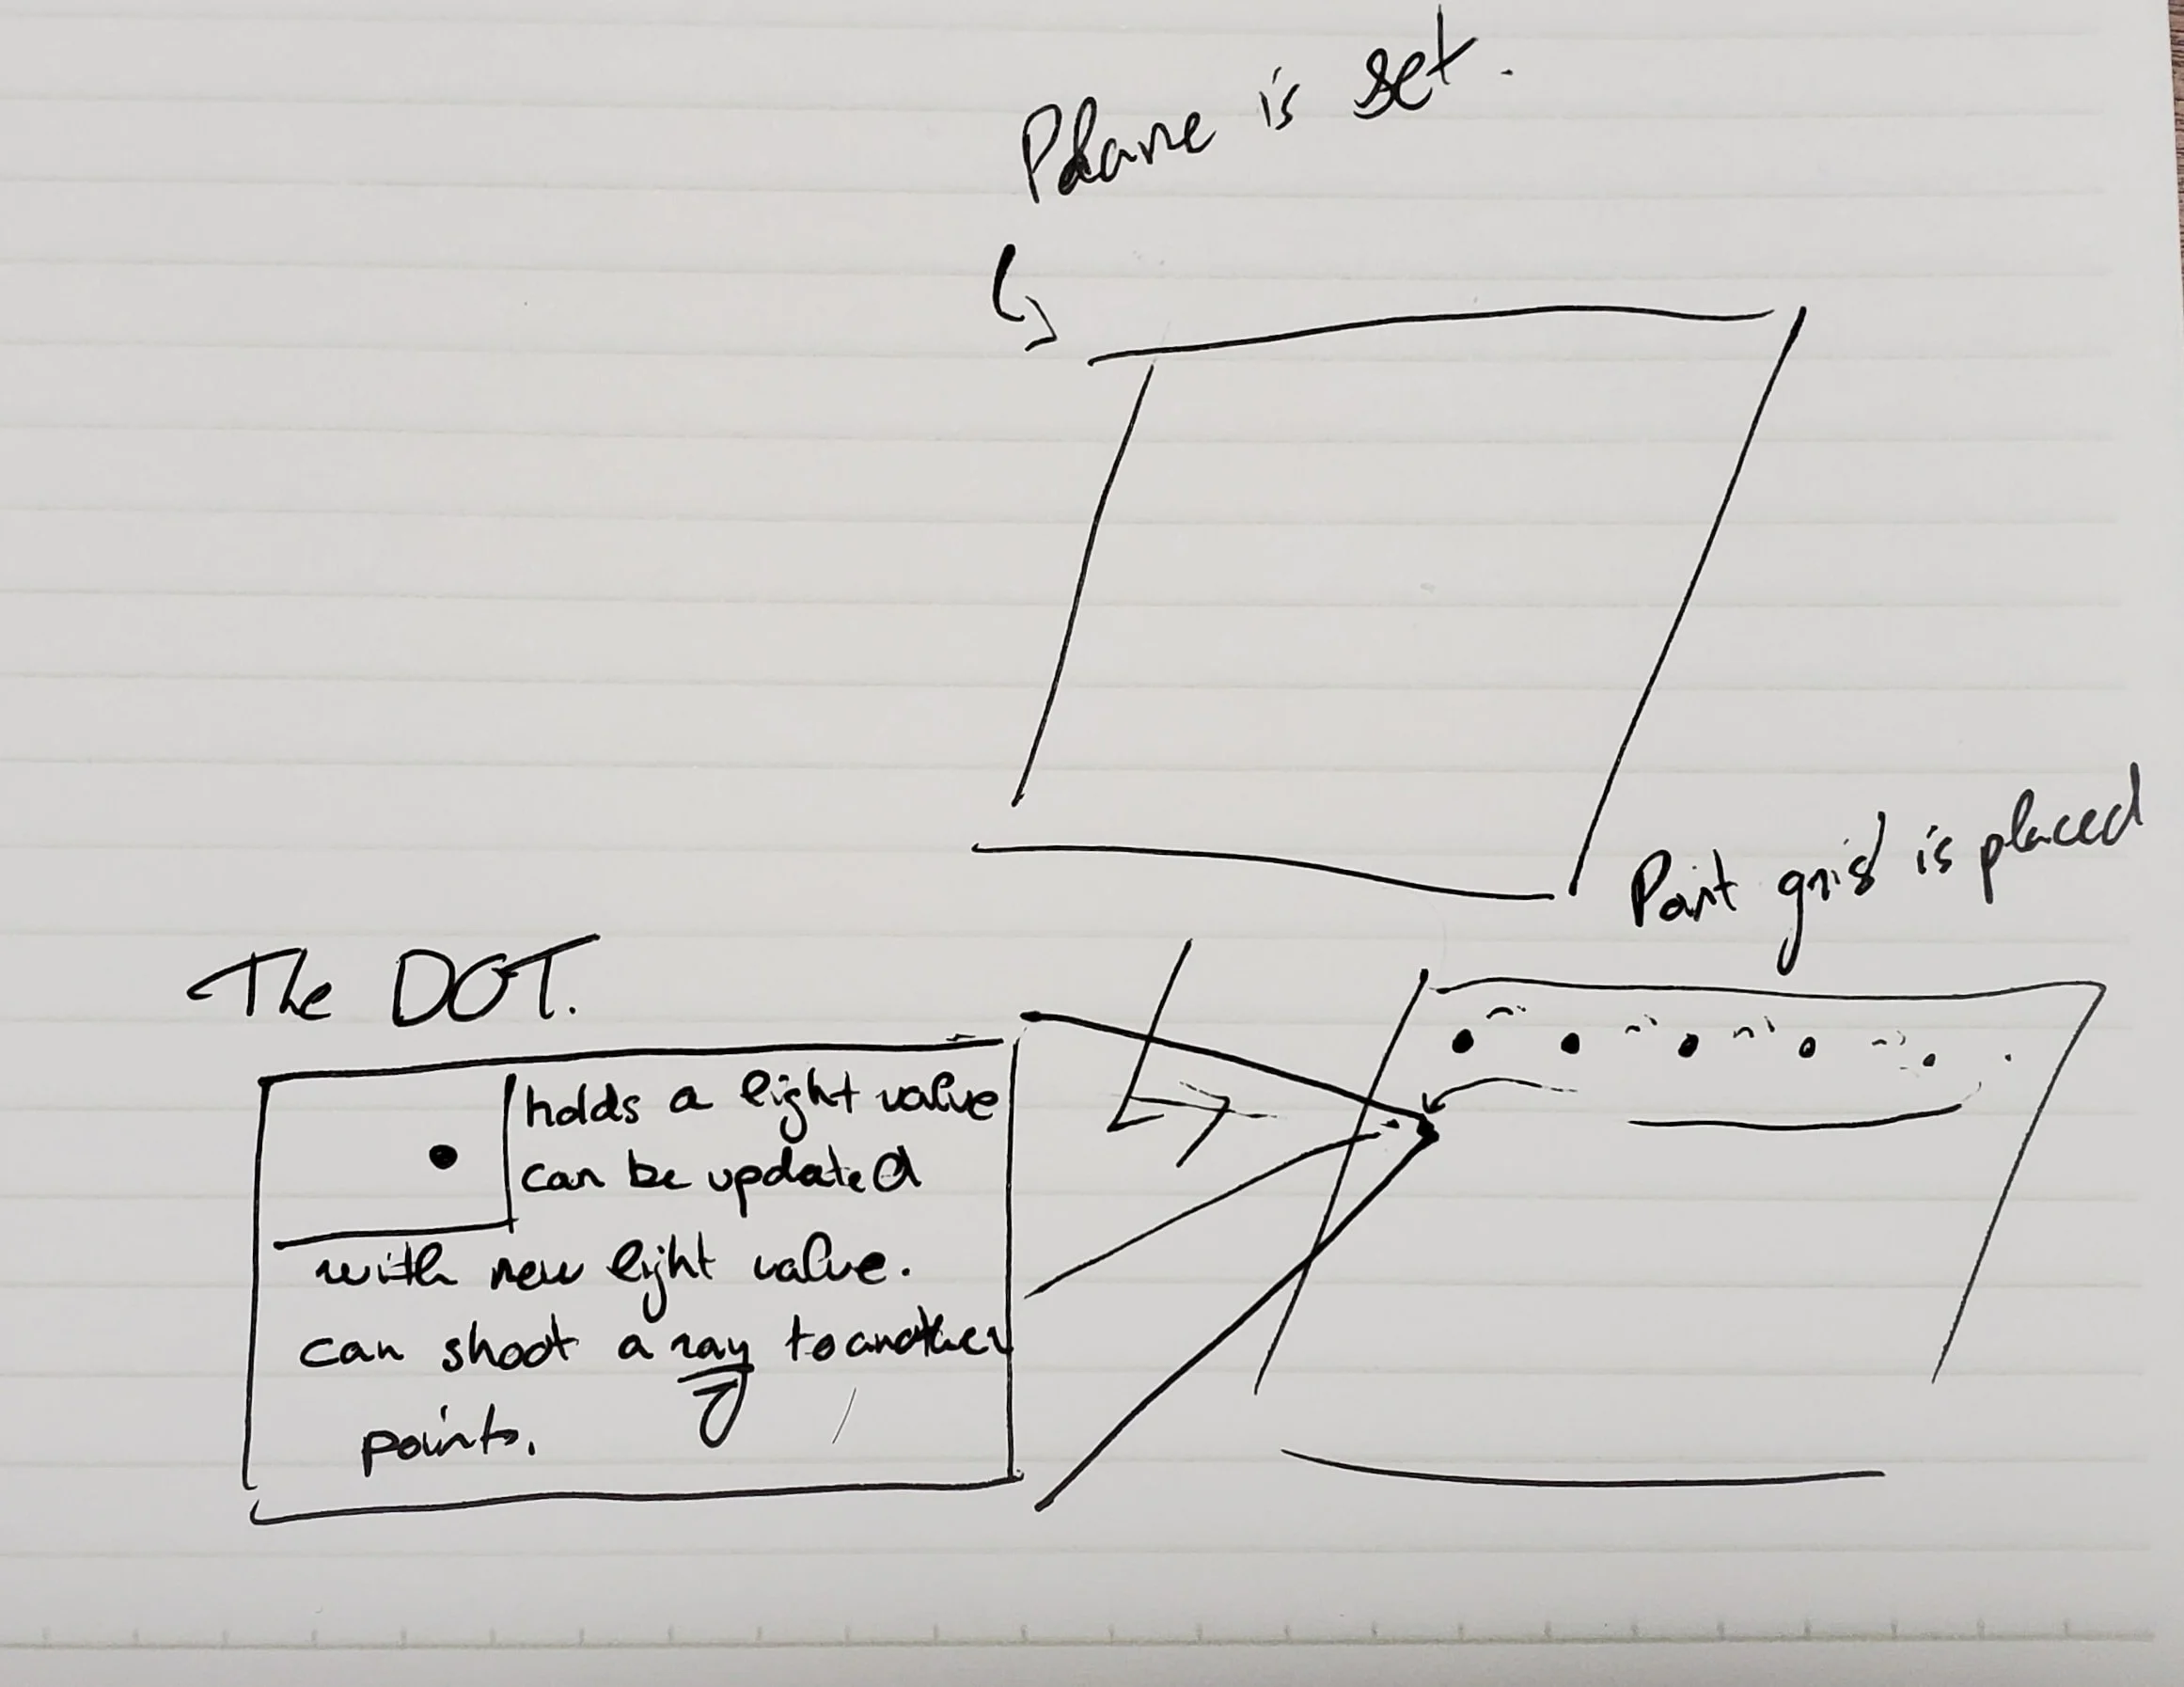 Plane is set.
Point grid is placed
The DOT.
holds a light value
can be updated
with new light value.
can shoot a ray to another
points.